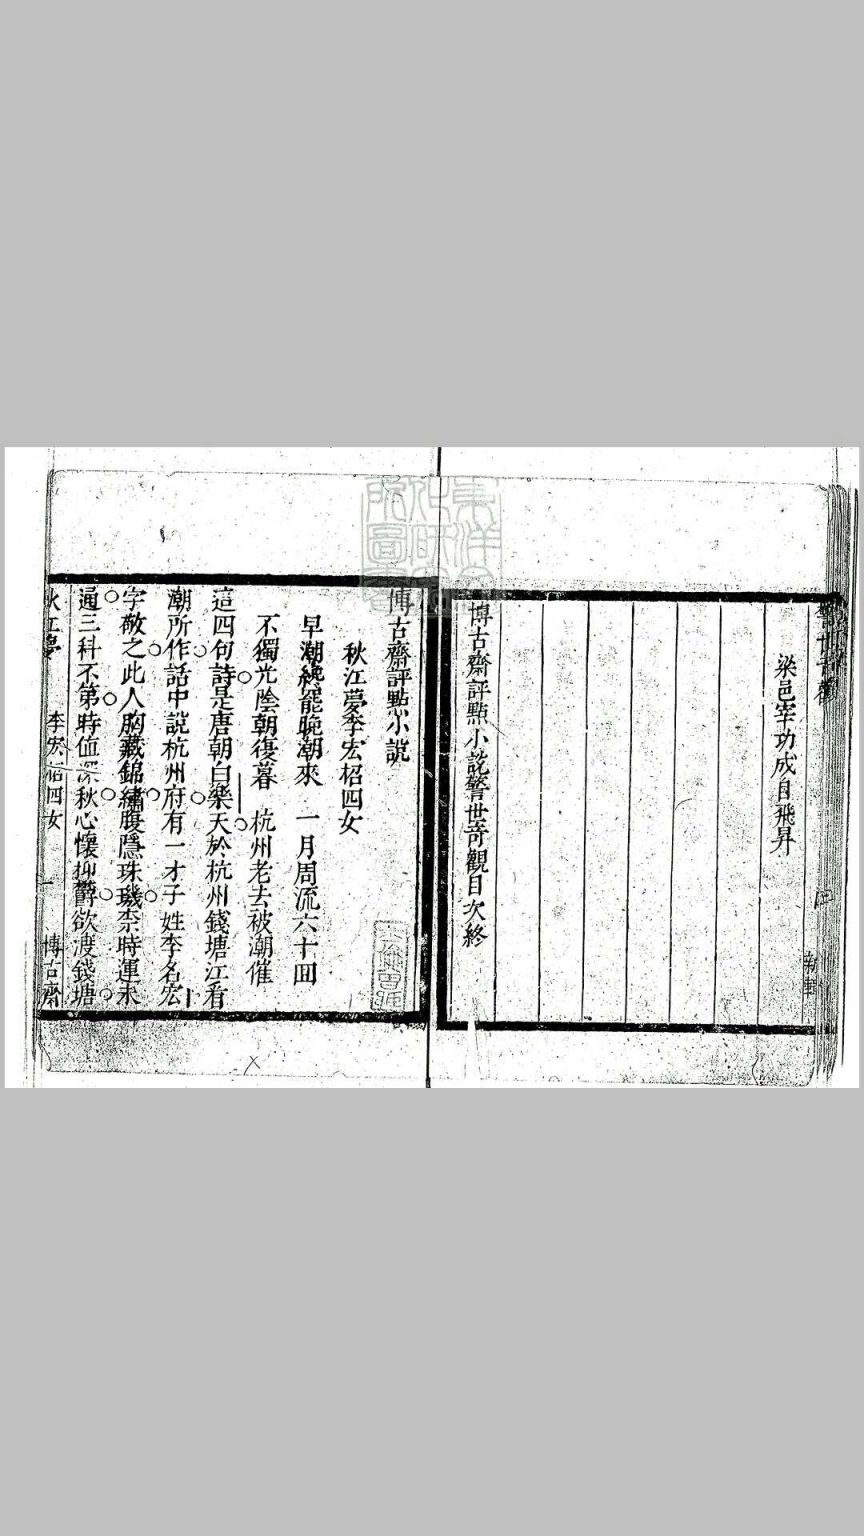 梁邑宰功成自飛昇
博古齋評點小說警世奇觀目次終
博古齋評點小說
秋江夢李宏柖四女
早潮纔罷晚潮來 一月周流六十回
不獨光陰朝復暮 杭州老去被潮催
這四句詩是唐朝白樂天於杭州錢塘江看
潮所作話中說杭州府有一才子姓李名宏
字敬之此人胸藏錦繡腹隱珠璣柰時運未
逼三科不第時值深秋心懷抑欝欲渡錢塘
李宏柖四女
一
博古齋